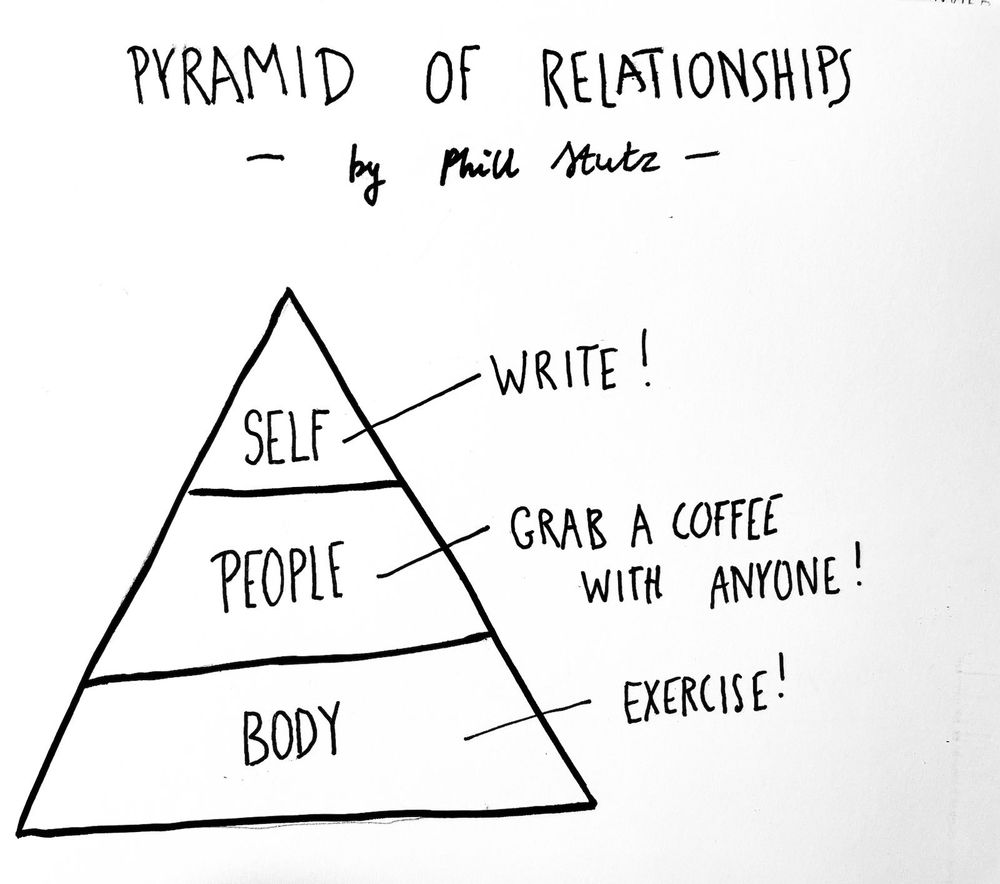 PYRAMID OF RELATIONSHIPS
— by Phill Stutz —
SELF
WRITE!
PEOPLE
GRAB A COFFEE
WITH ANYONE!
BODY
EXERCISE!